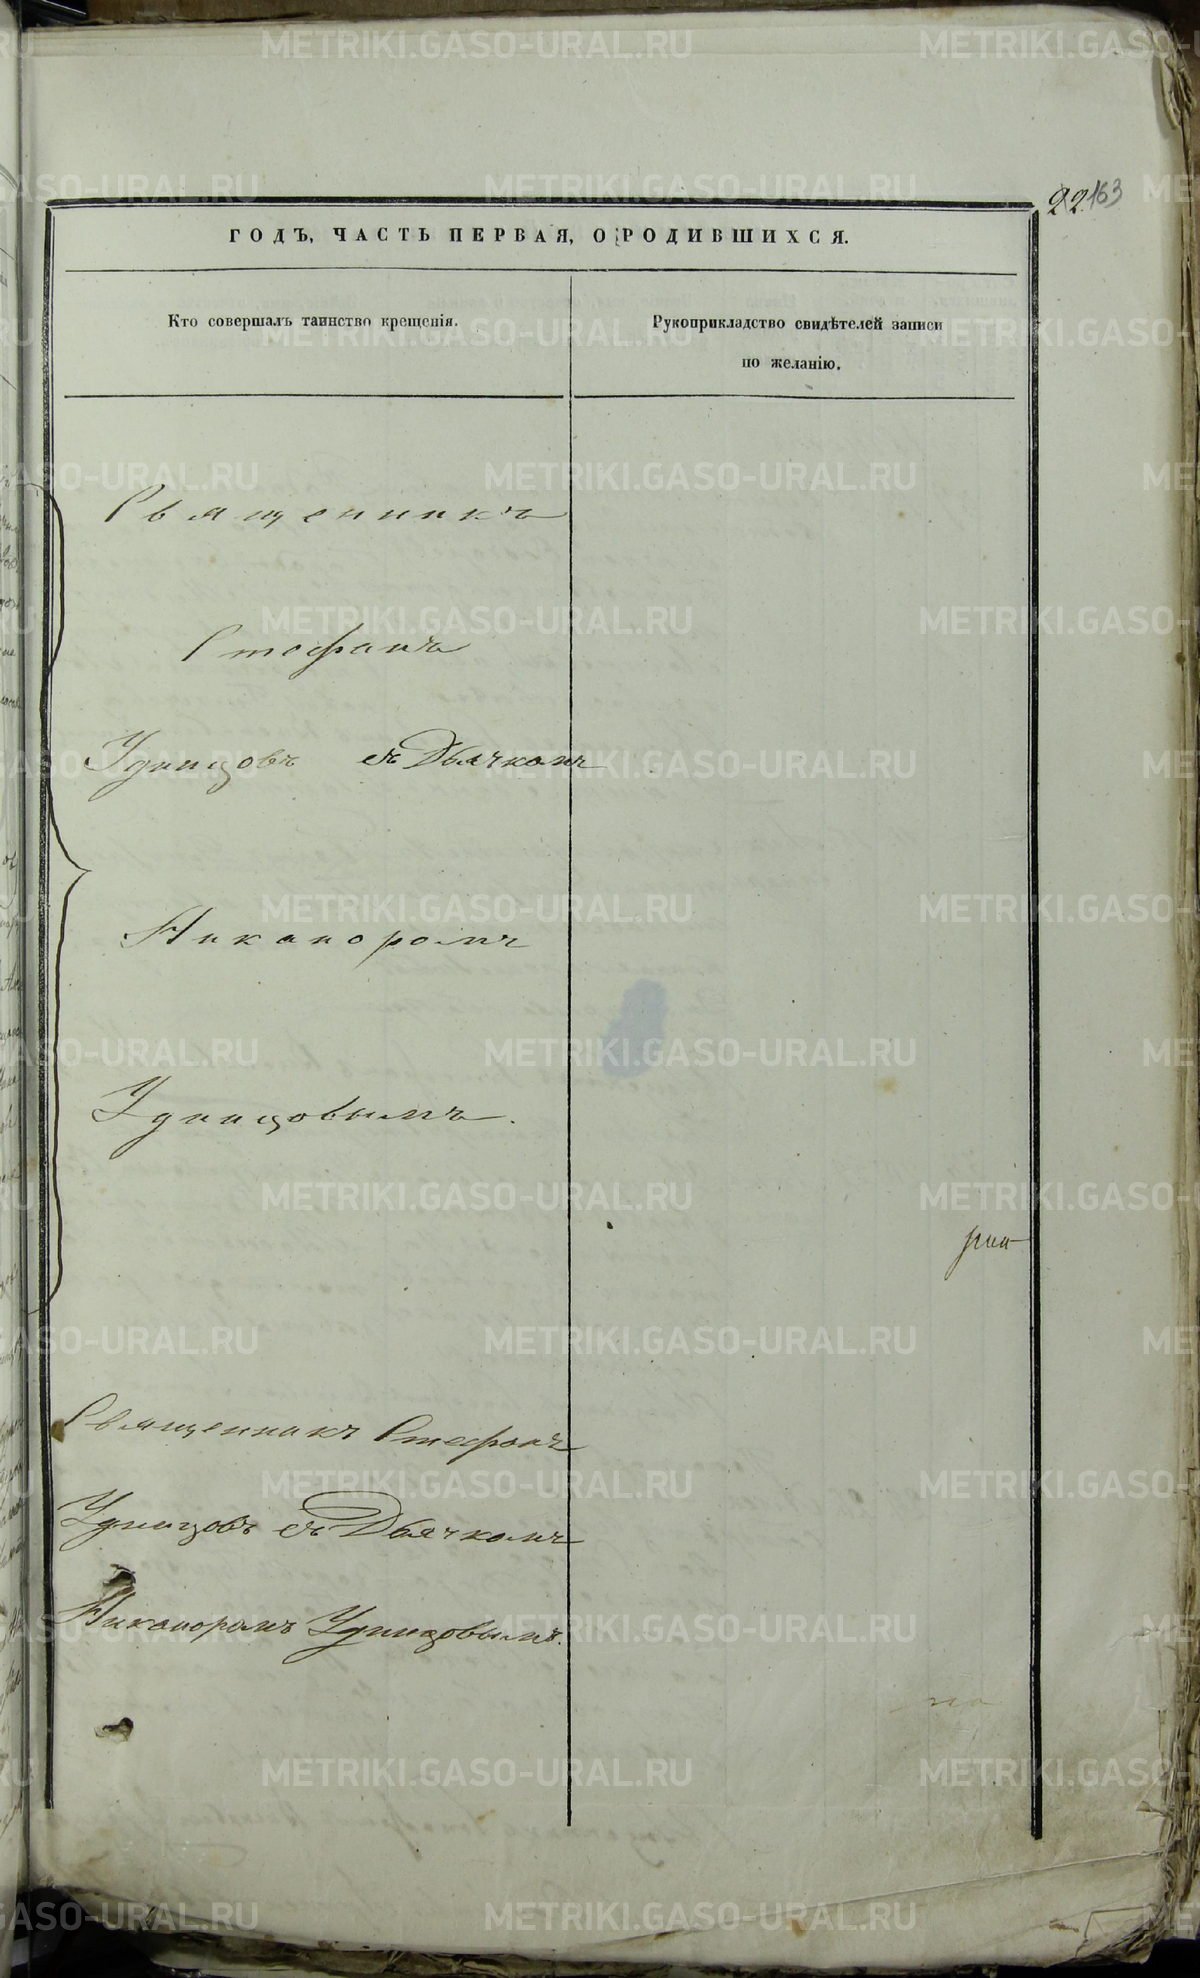 22 163
ГОДЪ, ЧАСТЬ ПЕРВАЯ, О РОДИВШИХСЯ.
Кто совершалъ таинство крещенія.
Рукоприкладство свидѣтелей записи
по желанію.
Священникъ
Стефанъ
Удинцовъ съ Дьячкомъ
Никаноромъ
Удинцовымъ.
Священникъ Стефанъ
Удинцовъ съ Дьячкомъ
Никаноромъ Удинцовымъ.
METRIKI.GASO-URAL.RU